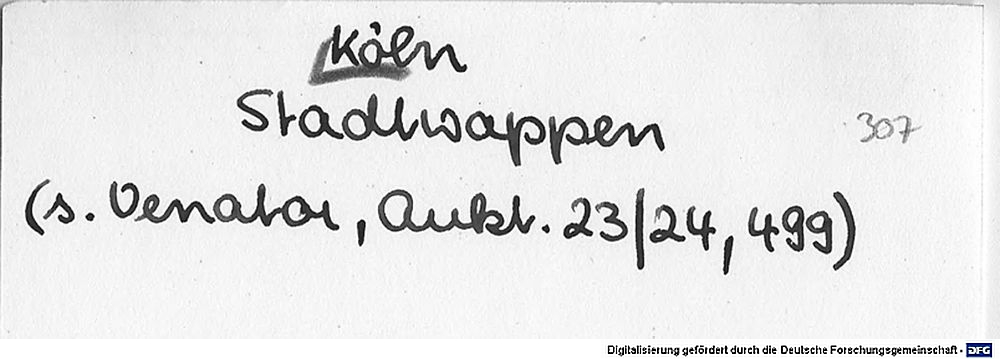 Köln
Stadtwappen
307
(s. Venator, Aukt. 23/24, 499)
Digitalisierung gefördert durch die Deutsche Forschungsgemeinschaft - DFG